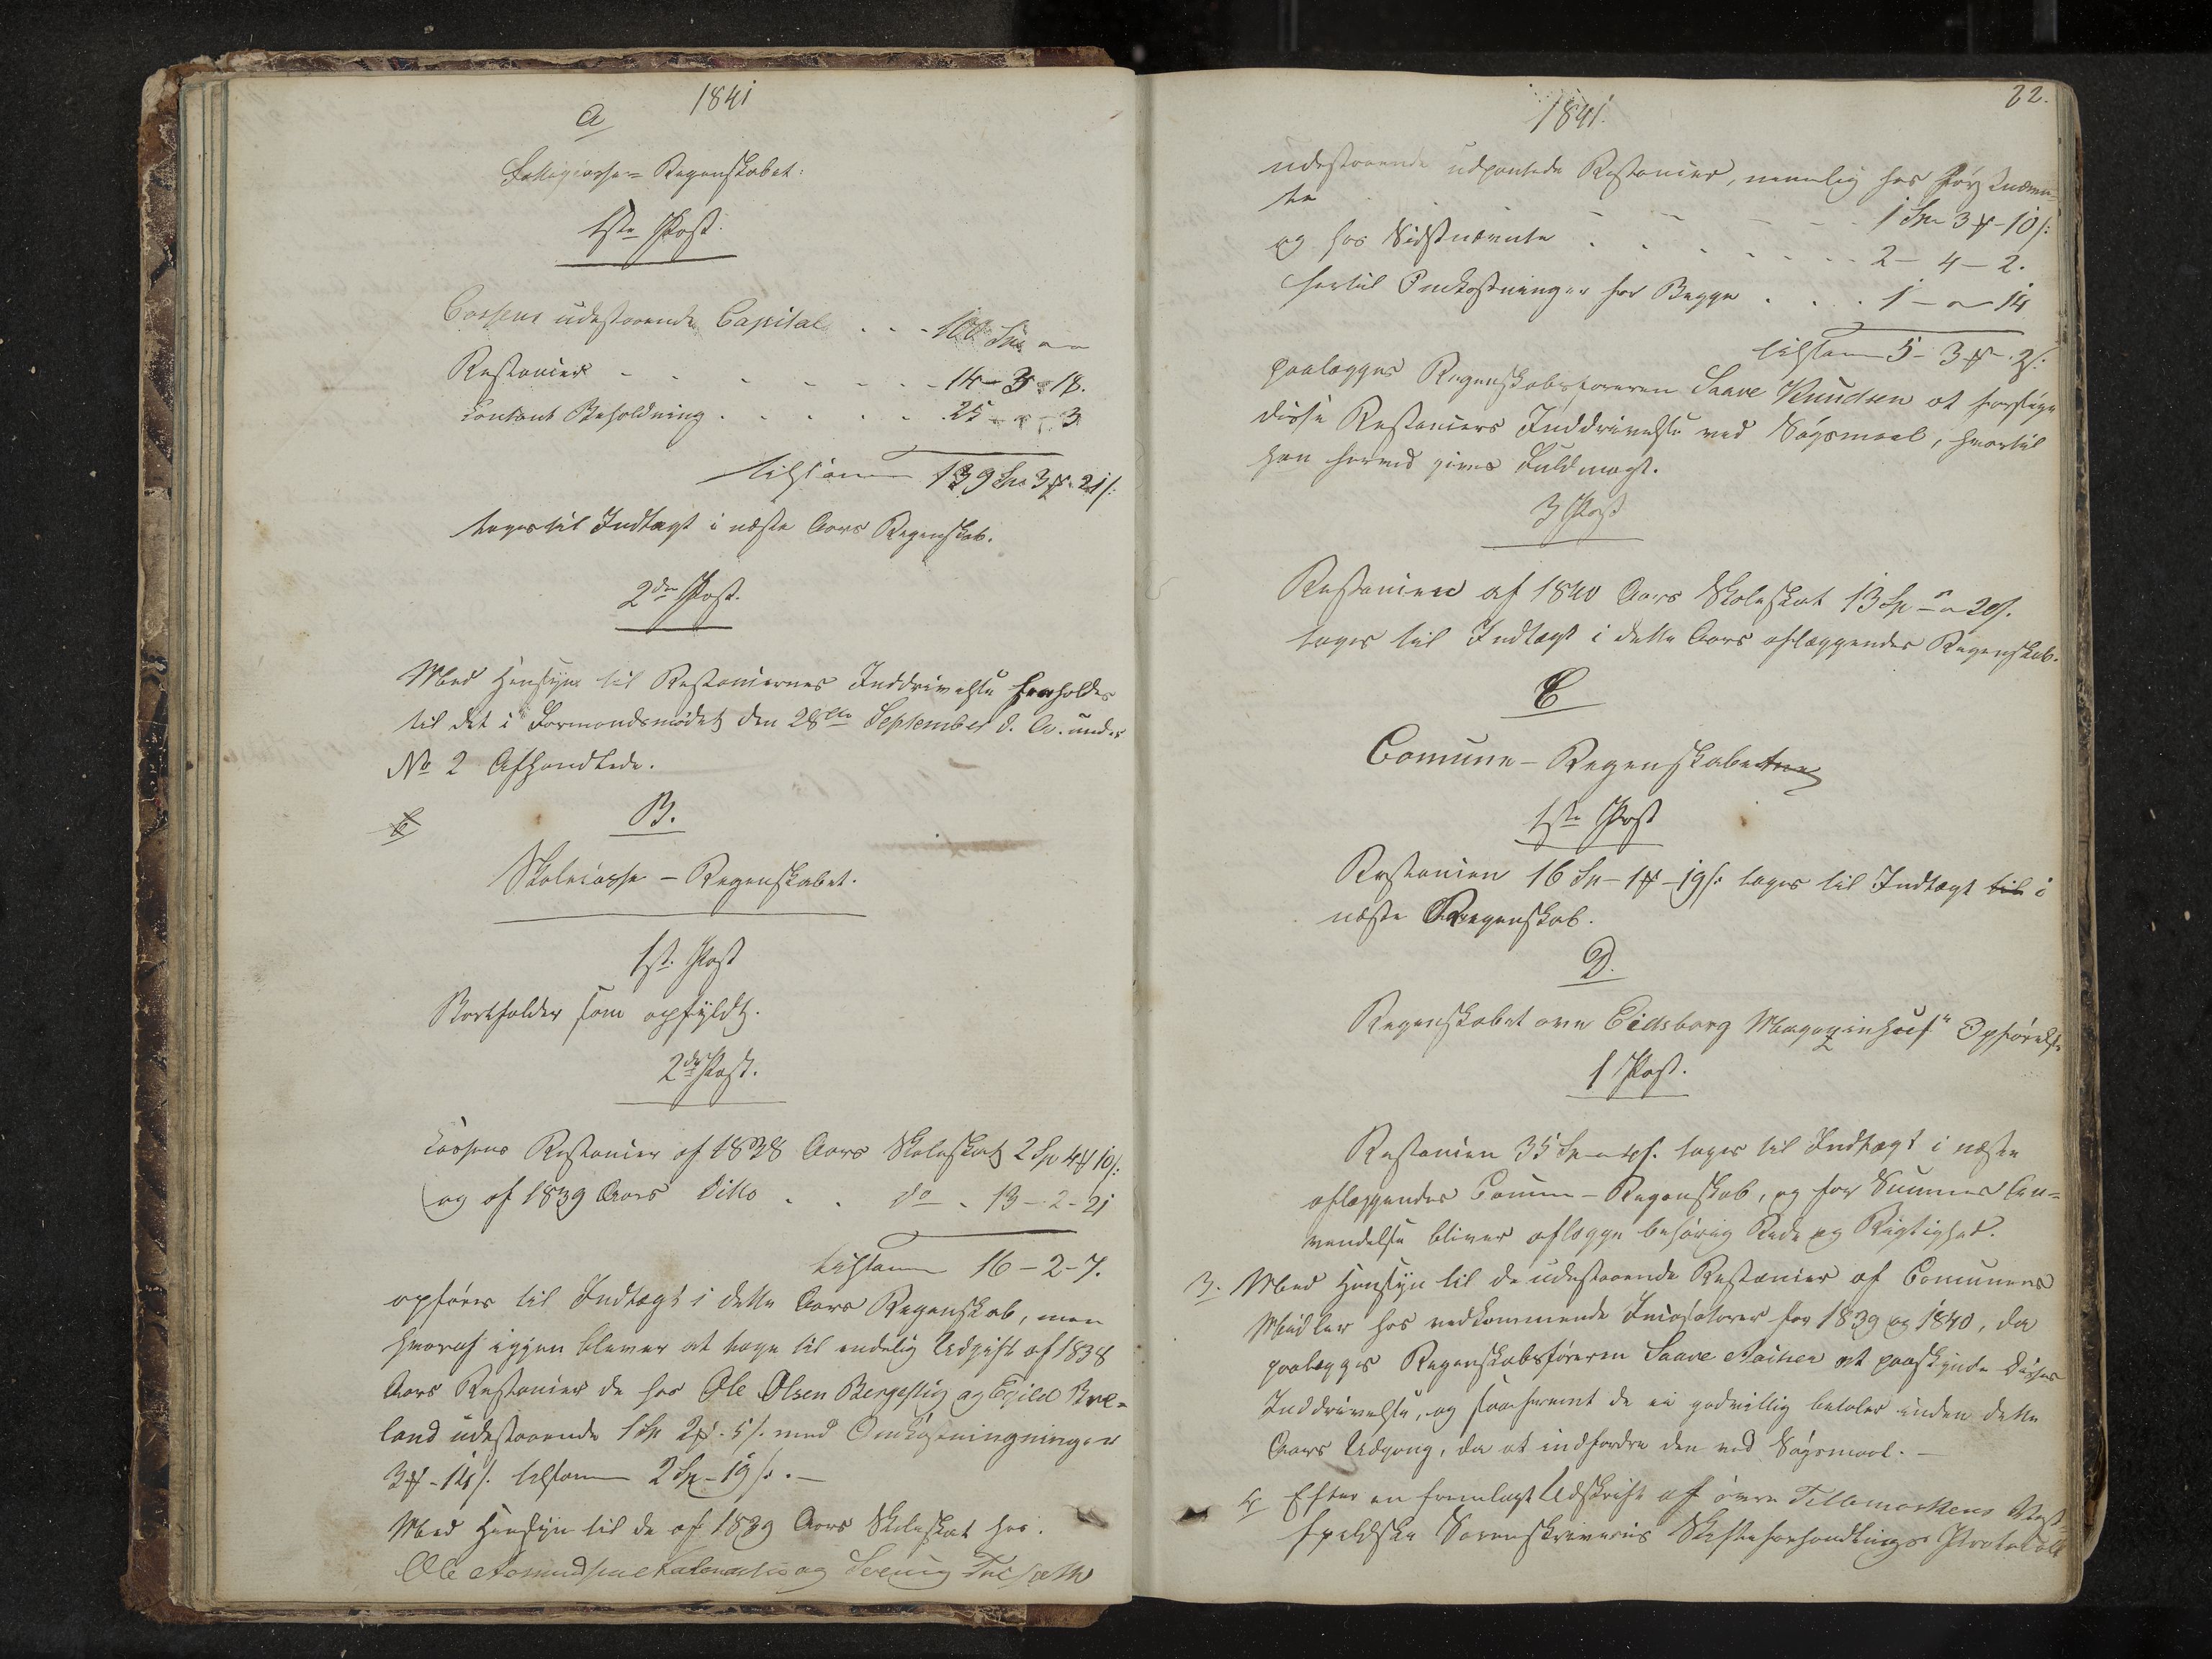 1841
A
Fattigcasse-Regenskabet:
1ste Post
Cassens udestaaende Capital . . . 100 Spd " "
Restancier . . . . . 14 - 3 - 18.
Contant Beholdning . . . . . 25 - " - 3
tilsammen 139 Spd 3 ort 21 s:
tages til Indtægt i næste Aars Regenskab.
2den Post.
Med Hensyn til Restanciernes Inddrivelse henholdes
til det i Formandsmødet den 28de September d. A. under
No 2 Afhandlede.
B.
Skolecasse-Regenskabet.
1ste Post
Bortfalder som opfyldt.
2den Post.
Cassens Restancier af 1838 Aars Skoleskat 2 Spd 4 ort 10 s:
og af 1839 Aars Ditto . . do . 13 - 2 - 21
tilsammen 16 - 2 - 7.
opføres til Indtægt i dette Aars Regenskab, men
hvoraf igjen bliver at tage til endelig Udgift af 1838
Aars Restancier de hos Ole Olsen og Egild Bre-
land udestaaende 1 Spd 2 ort 5 s. med Omkostningninger
3 ort - 14 s. tilsammen 2 Spd - 19 s. -
Med Hensyn til de af 1839 Aars Skoleskat hos
Ole Aamundsen og
22.
1841.
udestaaende udpantede Restancier, nemlig hos Førstnævn-
te - - - 1 Spd 3 ort - 10 s:
og hos Sidstnævnte . . . . . 2 - 4 - 2.
hertil Omkostninger for Begge . . . 1 - " - 14
tilsammen 5 - 3 ort - 2 s.
paalægges Regenskabsføreren Saave Knudsen at forsøge
disse Restanciers Inddrivelse ved Søgsmaal, hvortil
han herved gives Fuldmagt.
3 Post
Restancien af 1840 Aars Skoleskat 13 Spd - " - 20 s.
tages til Indtægt i dette Aars aflæggendes Regenskab.
C
Comune-Regenskaberne
1ste Post
Restancien 16 Spd - 1 ort - 19 s: tages til Indtægt til i
næste Regenskab.
D.
Regenskabet over Eidsborg Magazinhuus" Opførelse
1 Post.
Restancien 35 Spd tages til Indtægt i næste
aflæggendes Comune-Regenskab, og for Summens An-
vendelse bliver aflægge behørig Rede og Rigtighed.
3. Med Hensyn til de udestaaende Restancier af Comunens
Midler hos vedkommende Incasatorer for 1839 og 1840, da
paalægges Regenskabsføreren Saave at paaskynde disses
Inddrivelse, og saafremt de ei godvillig betales inden dette
Aars Udgang, da at indfordre den ved Søgsmaal. -
4 Efter en fremlagt Udskrift af øvre Tellemarkens Vest-
fjeldske Sorenskriveries Skifteforhandlings Protokoll